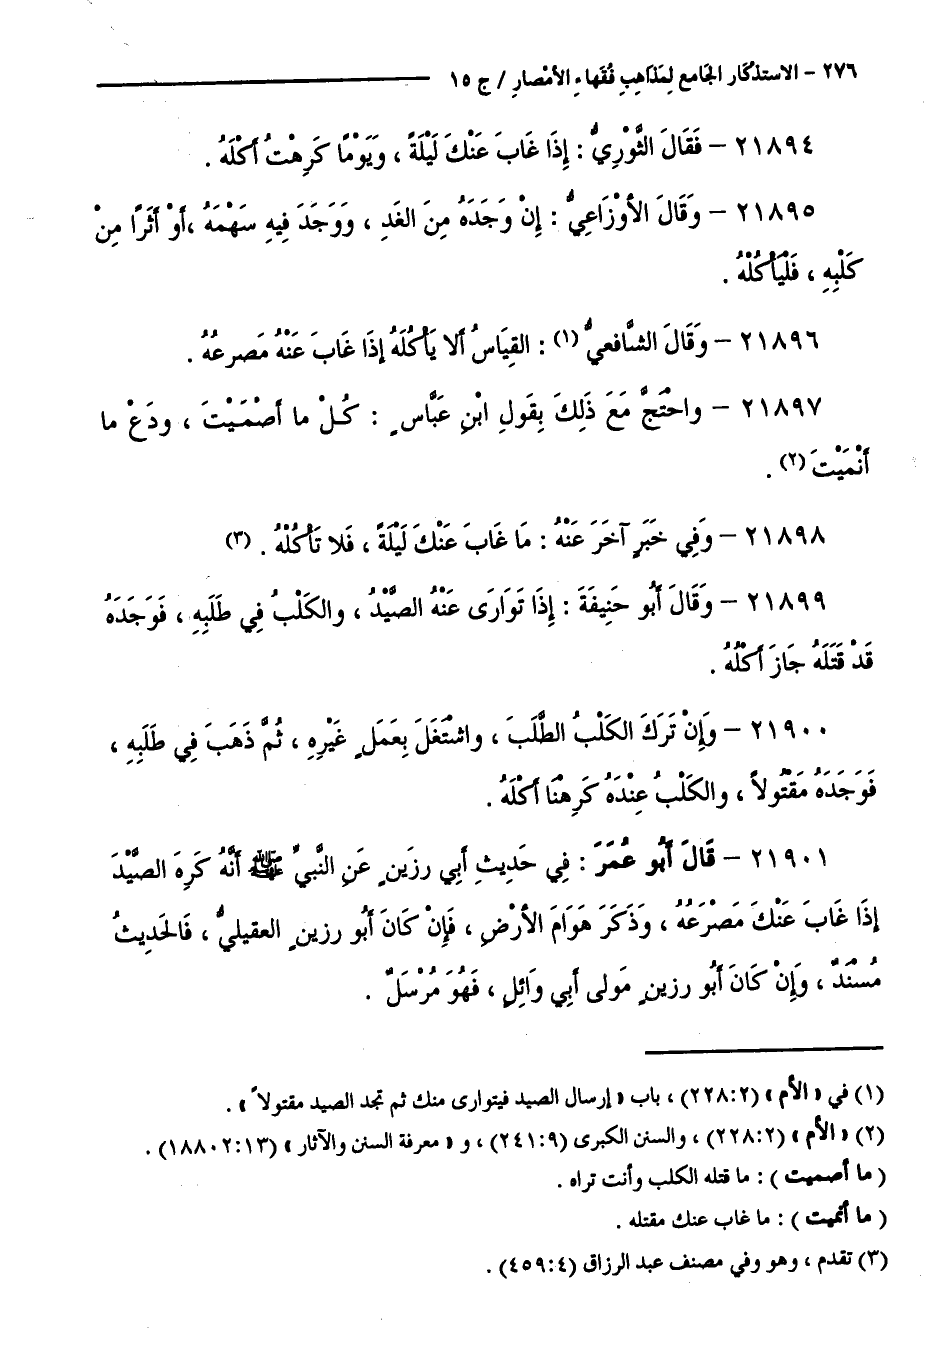 ٢٧٦ - الاستذكار الجَامع لِمَذاهِبِ فُقَهاءِ الأمْصارِ / ج ١٥
٢١٨٩٤ - فَقَالَ الثَّوْرِيُّ : إِذَا غَابَ عَنْكَ لَيْلَةً ، وَيَوْمًا كَرِهْتُ أكْلَهُ .
٢١٨٩٥ - وَقَالَ الأوْزَاعِيُّ : إِنْ وَجَدَهُ مِنَ الغَدِ ، وَوَجَدَ فِيهِ سَهْمَهُ ،أوْ أثَرًا مِنْ
كَلْبِهِ ، فَلْيَأكُلْهُ .
٢١٨٩٦ - وَقَالَ الشَّافعيُّ (١) : القِيَاسُ ألا يَأكُلَهُ إِذَا غَابَ عَنْهُ مَصرعُهُ .
٢١٨٩٧ - واحْتَجَّ مَعَ ذَلِكَ بِقَولِ ابْنِ عَبَّاسٍ : كُلْ ما أصْمَيْتَ ، ودَعْ ما
أنْمَيْتَ (٢) .
٢١٨٩٨ - وَفِي خَبَرٍ آخَرَ عَنْهُ : مَا غَابَ عَنْكَ لَيْلَةً ، فَلا تَأكُلْهُ . (٣)
٢١٨٩٩ - وَقَالَ أبُو حَنِيفَةَ : إِذَا تَوَارَى عَنْهُ الصَّيْدُ ، والكَلْبُ فِي طَلَبِهِ ، فَوَجَدَهُ
قَدْ قَتَلَهُ جَازَ أكْلُهُ .
٢١٩٠٠ - وَإِنْ تَرَكَ الكَلْبُ الطَّلَبَ ، واشْتَغَلَ بِعَمَلٍ غَيْرِهِ ، ثُمَّ ذَهَبَ فِي طَلَبِهِ ،
فَوَجَدَهُ مَقْتُولاً ، والكَلْبُ عِنْدَهُ كَرِهْنَا أكْلَهُ .
٢١٩٠١ - قَالَ أبُو عُمَرَ : فِي حَدِيثِ أبِي رزَينٍ عَنِ النَّبيِّ ﷺ أنَّهُ كَرِهَ الصَّيْدَ
إِذَا غَابَ عَنْكَ مَصْرَعُهُ ، وَذَكَرَ هَوَامَ الأرْضِ ، فَإِنْ كَانَ أبُو رزينٍ العقيليُّ ، فَالحَدِيثُ
مُسْنَدٌ ، وَإِنْ كَانَ أبُو رزينٍ مَولى أبِي وَائِلٍ ، فَهُوَ مُرْسَلٌ .
(١) في « الأم » (٢٢٨:٢) ، باب « إرسال الصيد فيتوارى منك ثم تجد الصيد مقتولاً » .
(٢) « الأم » (٢٢٨:٢) ، والسنن الكبرى (٢٤١:٩) ، و « معرفة السنن والآثار » (١٨٨٠٢:١٣) .
( ما أصميت ) : ما قتله الكلب وأنت تراه .
( ما أنميت ) : ما غاب عنك مقتله .
(٣) تقدم ، وهو وفي مصنف عبد الرزاق (٤٥٩:٤) .